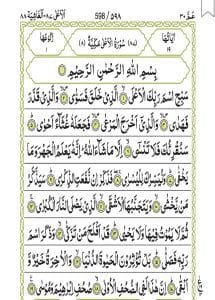 عَمَّ ٣٠ 598 / ٥٩٨ اَلْاَعْلٰى ٨٧- اَلْغَاشِيَة ٨٨
اٰيَاتُهَا ١٩ (٨٧) سُوْرَةُ الْاَعْلٰى مَكِّيَّةٌ (٨) رُكُوْعُهَا
بِسْمِ اللّٰهِ الرَّحْمٰنِ الرَّحِيْمِ
سَبِّحِ اسْمَ رَبِّكَ الْاَعْلَى ۙ۝١ الَّذِيْ خَلَقَ فَسَوّٰى ۙ۝٢ وَالَّذِيْ قَدَّرَ
فَهَدٰى ۙ۝٣ وَالَّذِيْٓ اَخْرَجَ الْمَرْعٰى ۙ۝٤ فَجَعَلَهٗ غُثَآءً اَحْوٰى ۙ۝٥
سَنُقْرِئُكَ فَلَا تَنْسٰٓى ۙ۝٦ اِلَّا مَا شَآءَ اللّٰهُ ۚ اِنَّهٗ يَعْلَمُ الْجَهْرَ وَمَا
يَخْفٰى ۙ۝٧ وَنُيَسِّرُكَ لِلْيُسْرٰى ۙ۝٨ فَذَكِّرْ اِنْ نَّفَعَتِ الذِّكْرٰى ۙ۝٩ سَيَذَّكَّرُ
مَنْ يَّخْشٰى ۙ۝١٠ وَيَتَجَنَّبُهَا الْاَشْقَى ۙ۝١١ الَّذِيْ يَصْلَى النَّارَ الْكُبْرٰى ۚ۝١٢
ثُمَّ لَا يَمُوْتُ فِيْهَا وَلَا يَحْيٰى ۙ۝١٣ قَدْ اَفْلَحَ مَنْ تَزَكّٰى ۙ۝١٤ وَذَكَرَ اسْمَ
رَبِّهٖ فَصَلّٰى ۙ۝١٥ بَلْ تُؤْثِرُوْنَ الْحَيٰوةَ الدُّنْيَا ۙ۝١٦ وَالْاٰخِرَةُ خَيْرٌ وَّ
اَبْقٰى ۙ۝١٧ اِنَّ هٰذَا لَفِي الصُّحُفِ الْاُوْلٰى ۙ۝١٨ صُحُفِ اِبْرٰهِيْمَ وَمُوْسٰى ۝١٩